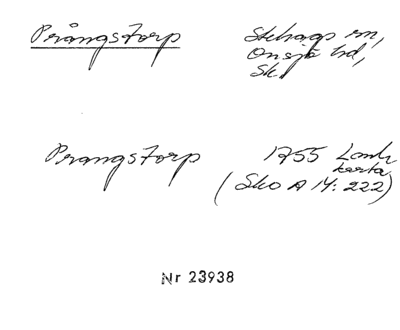 Prångstorp
Stehags sn,
Onsjö hd,
Sk.
Prangstorp
1755 Lantm
karta
(Sko A 14: 222)
Nr 23938